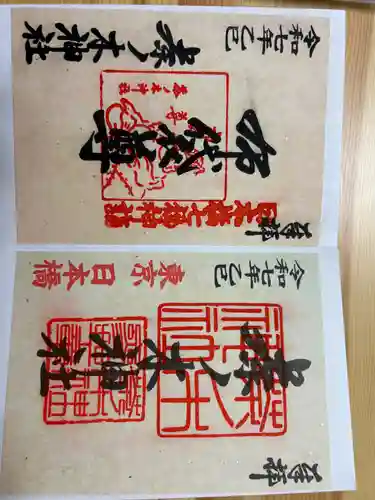 奉拝
茶ノ木神社
令和七年乙巳
東京日本橋
奉拝
日本橋七福神詣
布袋尊
茶ノ木神社
令和七年乙巳
茶ノ木神社